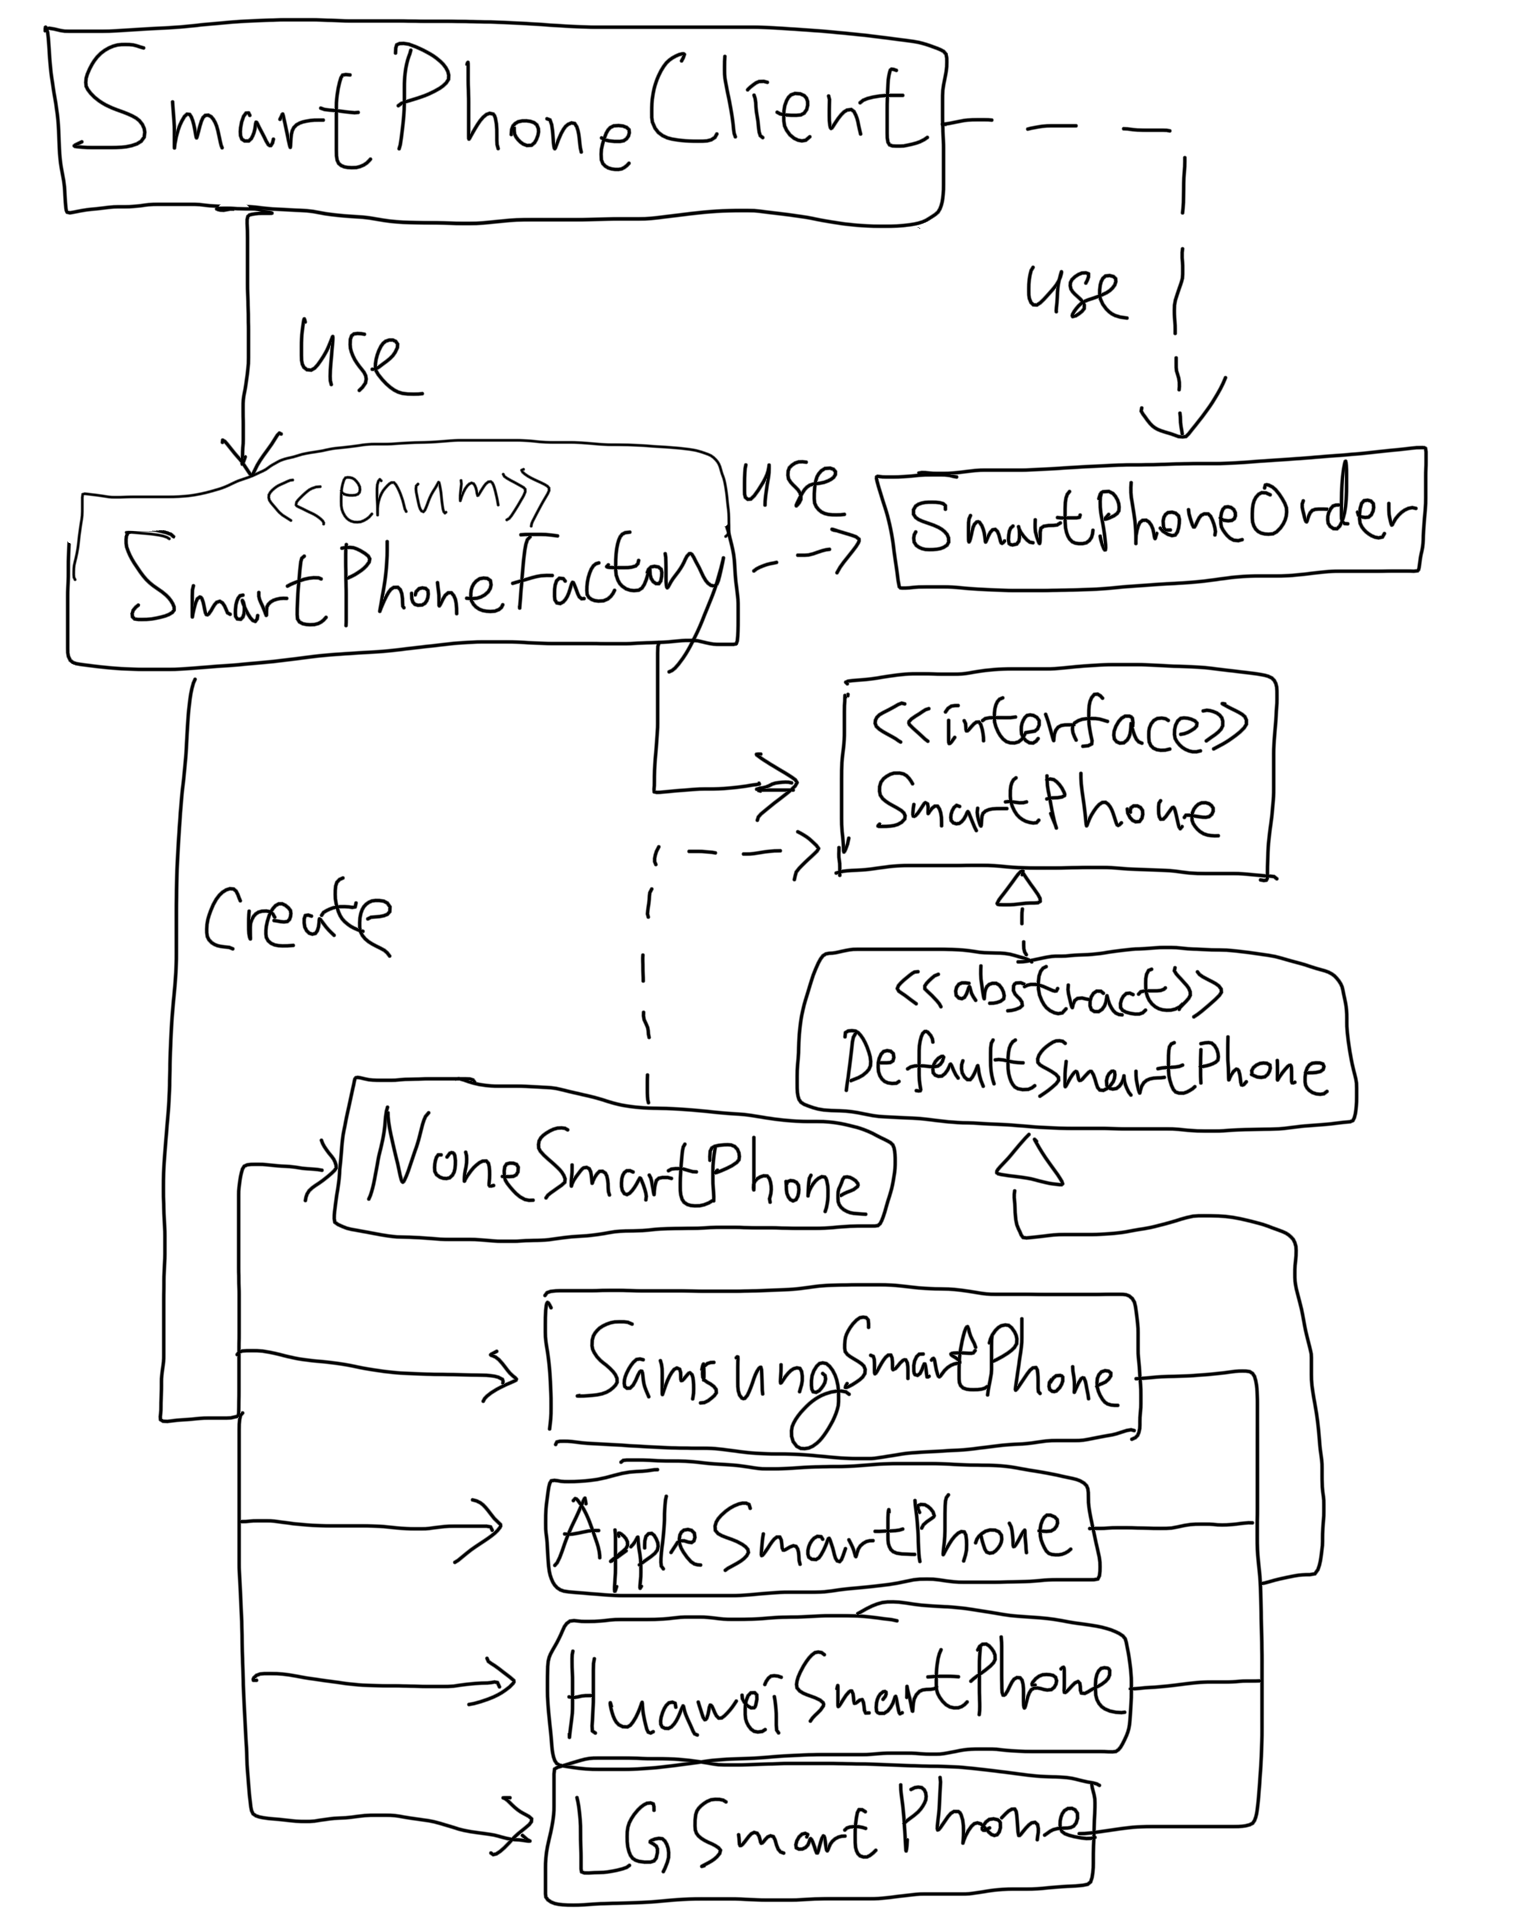 SmartPhoneClient
use
use
<<enum>>
SmartPhoneFactory
use
SmartPhoneOrder
<<interface>>
SmartPhone
create
<<abstract>>
DefaultSmartPhone
NoneSmartPhone
SamsungSmartPhone
AppleSmartPhone
HuaweiSmartPhone
LGSmartPhone